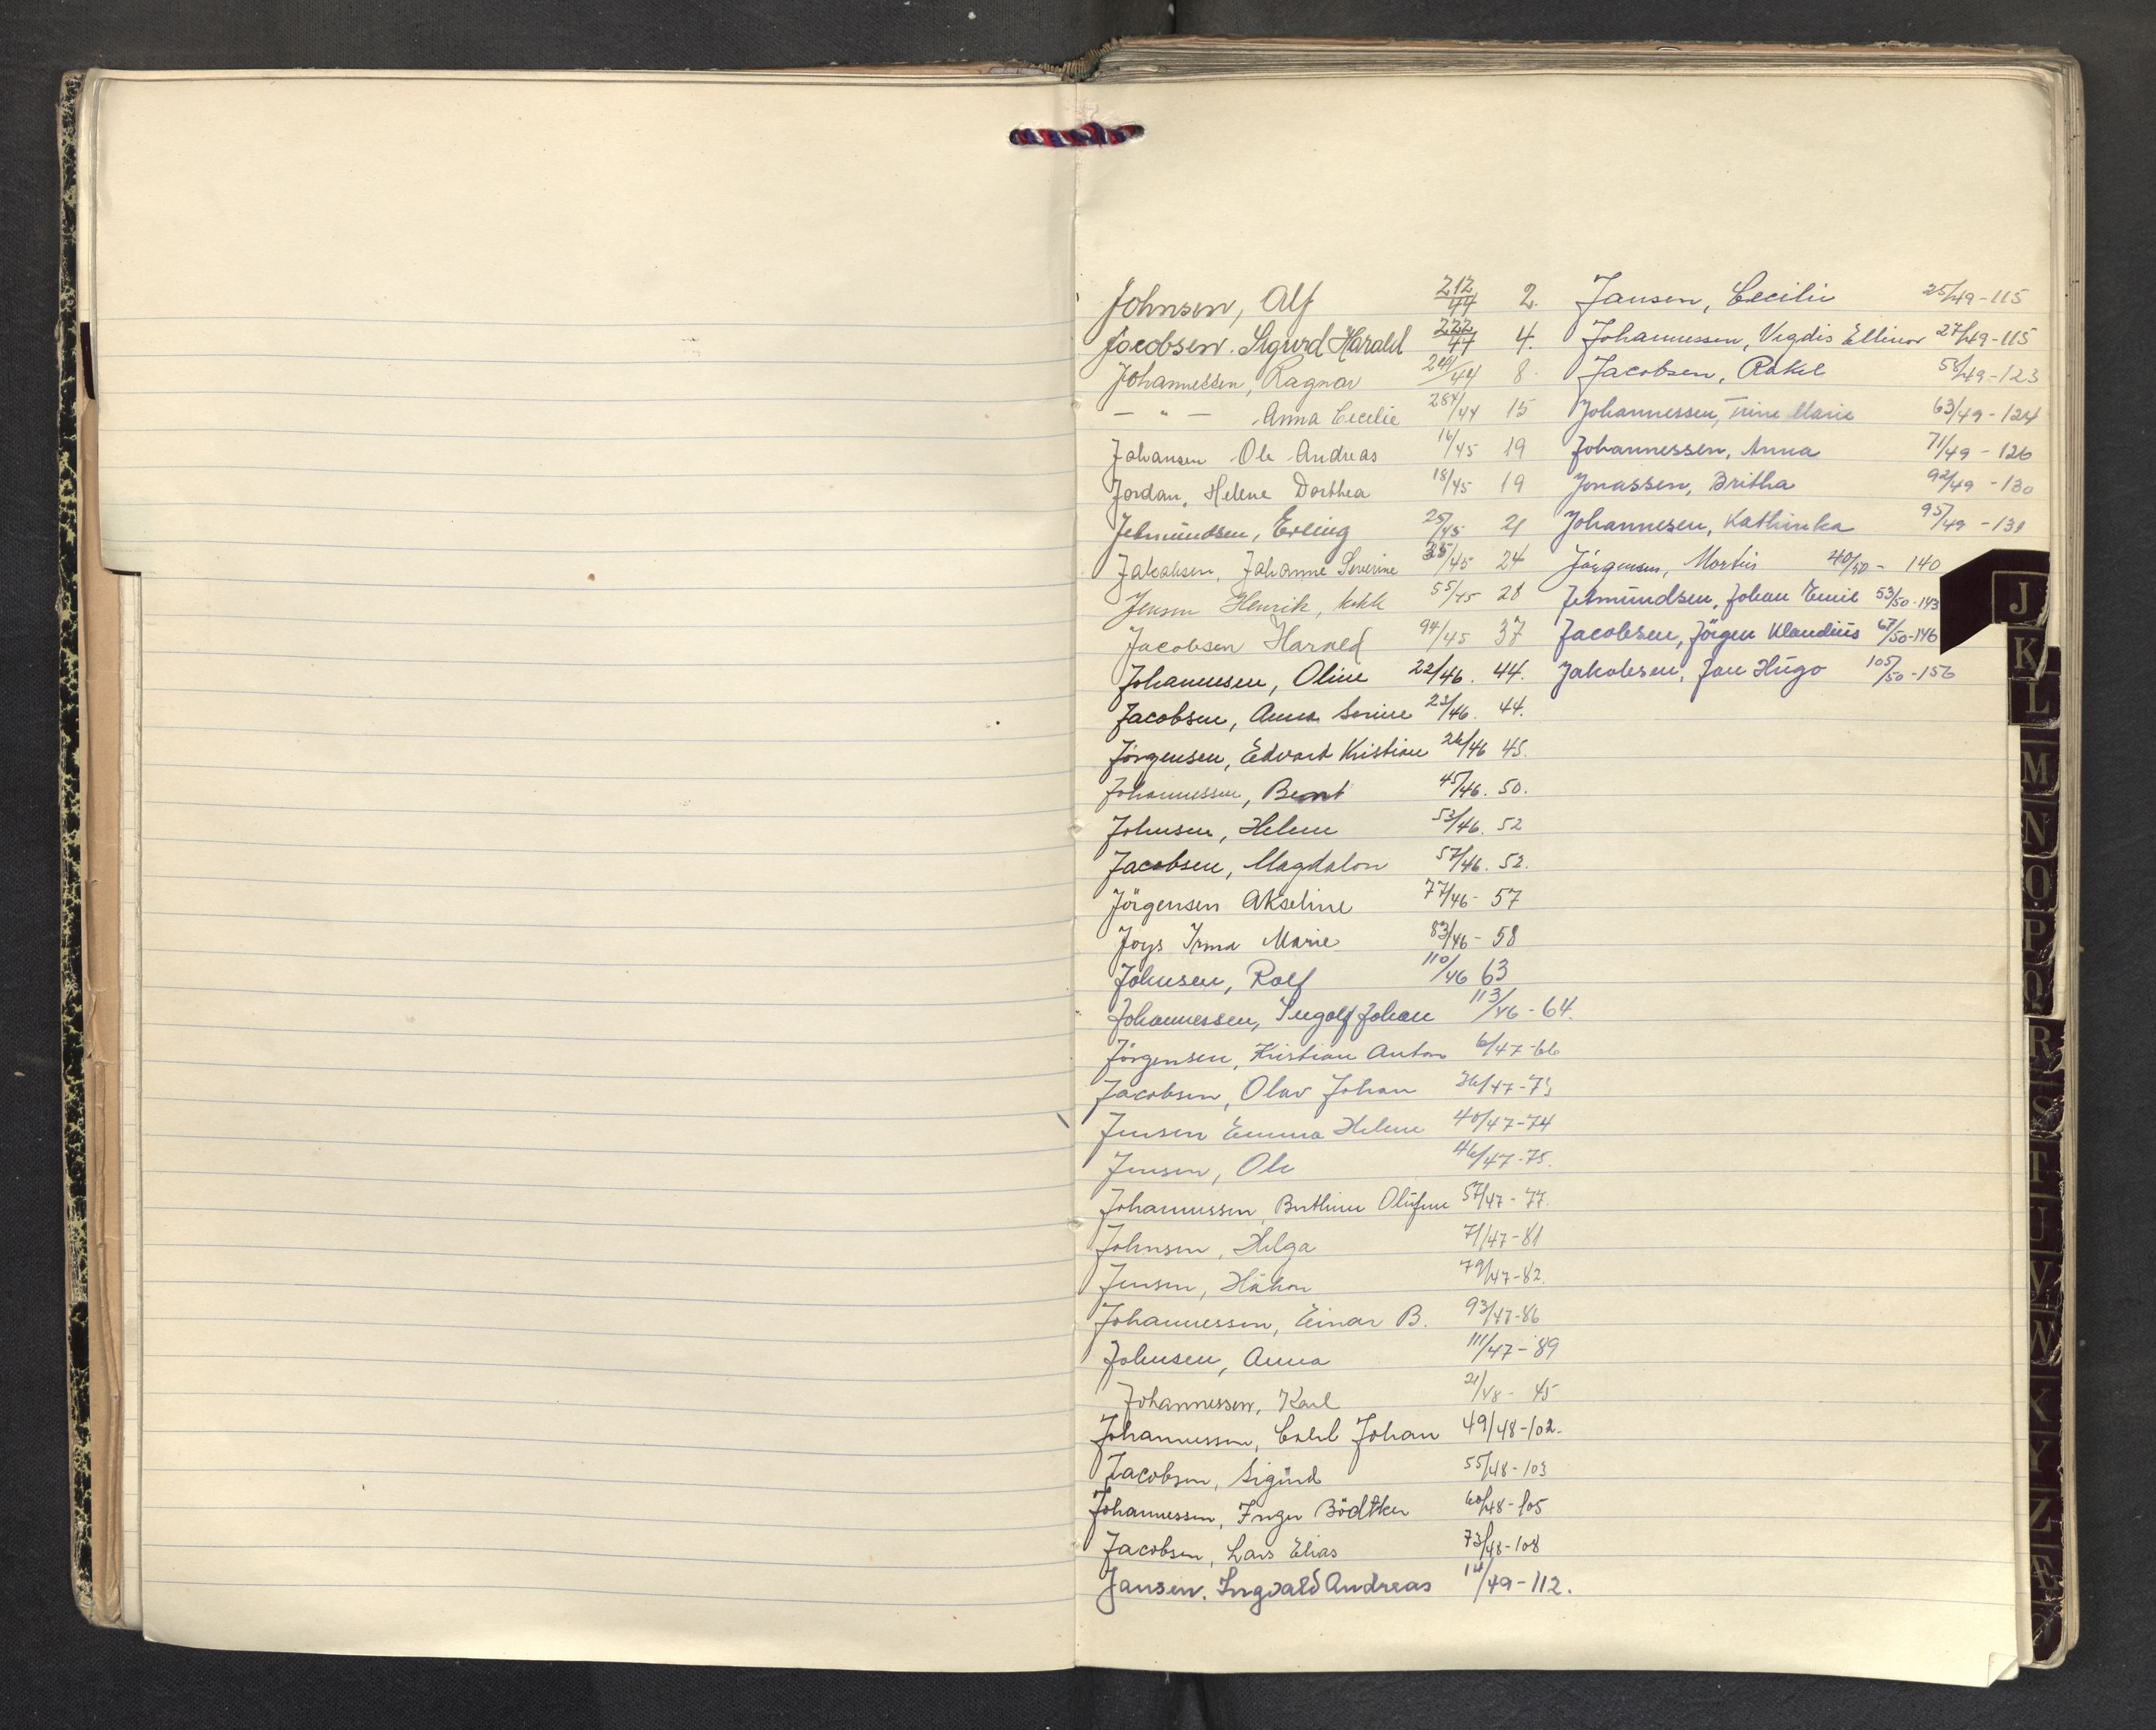 Johnsen, Alf 212/44 2.
Jacobsen. Sigurd Harald 222/44 4.
Johannessen, Ragnar 241/44 8.
— " — Anna Cecilie 284/44 15
Johansen Ole Andreas 16/45 19
Jordan, Helene Dorthea 18/45 19
Jetmundsen, Erling 25/45 21
Jakobsen, Johanne Severine 35/45 24
Jensen Henrik, kokk 55/45 28
Jacobsen Harald 94/45 37
Johannesen, Oline 22/46. 44.
Jacobsen, Anna Serine 23/46. 44.
Jörgensen, Edvart Kristian 26/46 45.
Johannessen, Bernt 45/46. 50.
Johnsen, Helene 53/46. 52
Jacobsen, Magdalon 57/46. 52.
Jörgensen Akseline 77/46- 57
Joys Irma Marie 83/46- 58
Johnsen, Rolf 110/46 63
Johannessen, Ingolf Johan 113/46-64.
Jörgensen, Kristian Anton 6/47-66
Jacobsen, Olav Johan 36/47-73
Jensen Emma Helene 40/47-74
Jensen, Ole 46/47-75.
Johannessen, Berthine Olufine 57/47-77.
Johnsen, Helga 71/47-81
Jensen, Håkon 79/47-82.
Johannessen, Einar B. 93/47-86
Johnsen, Anna 111/47-89
Johannessen, Karl 21/48- 45
Johannessen, Carl Johan 49/48-102.
Jacobsen, Sigurd 55/48-103
Johannessen, Inger Bödtker 60/48-105
Jacobsen, Lars Elias 73/48-108
Jansen. Ingvald Andreas 14/49-112.
Jansen, Cecilie 25/49-115
Johannessen, Vigdis Ellinor 27/49-115
Jacobsen, Rakel 58/49-123
Johannessen, Trine Marie 63/49-124
Johannessen, Anna 71/49-126
Jonassen, Britha 92/49-130
Johannesen, Kathinka 95/49-131
Jörgensen, Martin 40/50- 140
Jetmundsen, Johan Emil 53/50-143
Jacobsen, Jörgen Klaudius 67/50-146
Jakobsen, Jan Hugo 105/50-156
J
K
L
M
N
O
P
Q
R
S
T
U
V
W
X
Y
Z
Æ